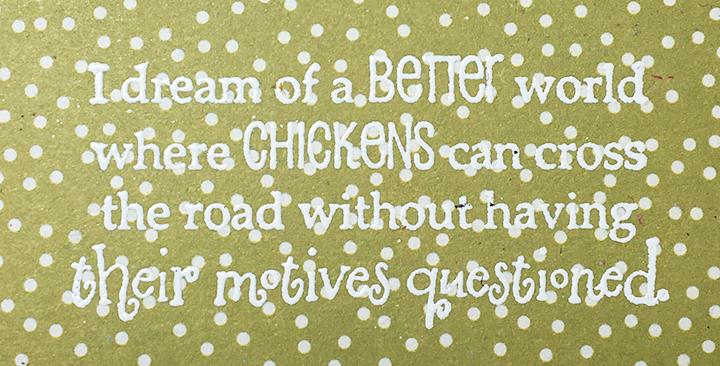 I dream of a BeTTer world
where CHICKeNS can cross
the road without having
their motives questioned.